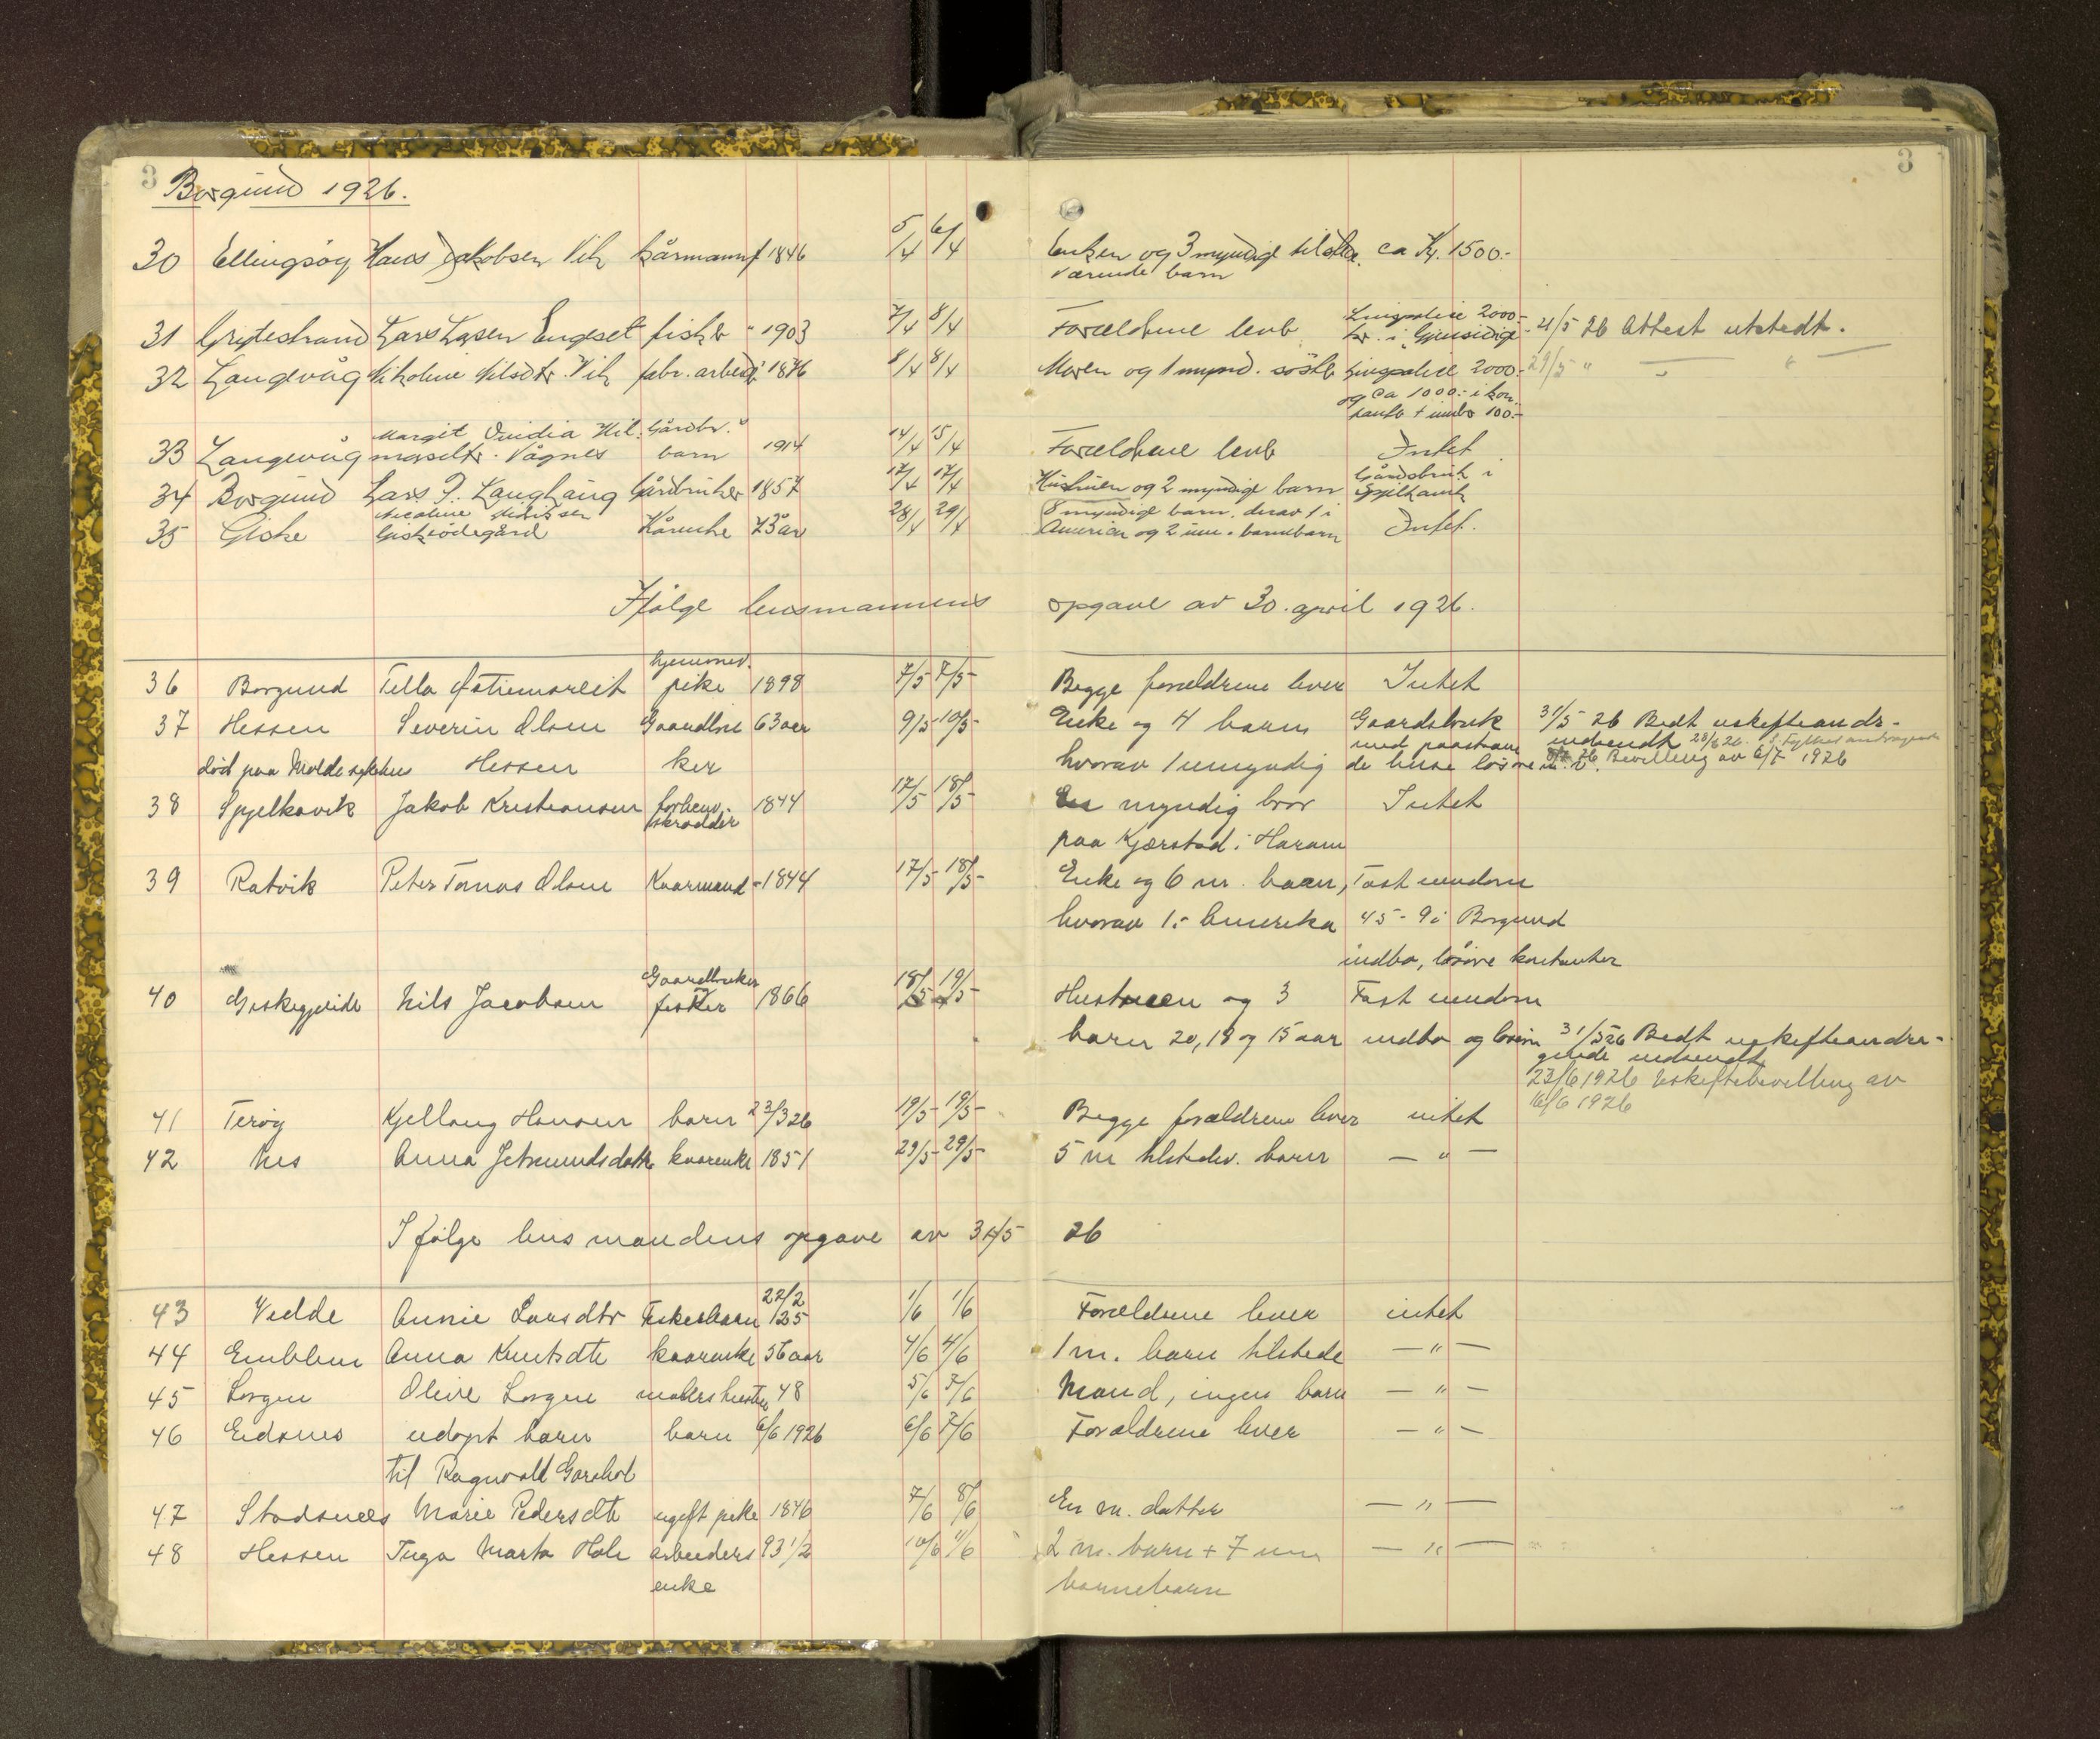 3 Borgund 1926. 3
30 Ellingsøy Hans Jakobsen Vik kårmann f 1846 5/4 6/4 Enken og 3 myndige tilstede ca Kr. 1500.-
værende barn
31 Grytestrand Lars Larsen Engeset fisker " 1903 7/4 8/4 Forældrene lever Livspolise 2000.- 21/5 26 Attest utstedt.
kr. i "Gjensidige"
32 Langevåg Nikoline Nilsdtr. Vik fabr. arbeid. " 1876 8/4 8/4 Moren og 1 mynd. søster Livspolise 2000.- 29/5 " — " —
og ca 1000.- i kon-
tanter + innbo 100.-
Margit Ovidia Hil- Gårdbr. "
33 Langevåg marsdtr. Vågnes barn 1914 14/4 15/4 Forældrene lever Intet
34 Borgund Lars P. Langhaug Gårdbruker 1857 17/4 17/4 Hustruen og 2 myndige barn Gårdsbruk i
Spjelkavik
Nicoline Nilssen 8 myndige barn, derav 1 i
35 Giske Giskeødegård Kårenke 73 år 28/4 29/4 Amerika og 2 um. barnebarn Intet.
Ifølge lensmannens opgave av 30. april 1926.
hjemmev.
36 Borgund Tella Østremsreit pike 1898 7/5 7/5 Begge forældrene lever Intet
37 Hessen Severin Olsen Gaardbru 63 aar 9/5 10/5 Enke og 4 barn Gaardsbruk 31/5 26 Bedt uskifteandr-
med paastaaen indsendt 28/6 26.
død paa Molde sykehus Hessen ker hvorav 1 umyndig de huse løsøre m. v. Bevilling av 6/7 1926
38 Spjelkavik Jakob Kristiansen forhenv. 1844 17/5 18/5 En myndig bror Intet
skrædder
paa Kjærstad i Haram
39 Ratvik Peter Tomas Olsen Kaarmand 1844 17/5 18/5 Enke og 6 m. barn, Fast eiendom
hvorav 1 i Amerika 45-9 i Borgund
indbo, løsøre kontanter
Gaardbruker
40 Giskegjerde Nils Jacobsen fisker 1866 18/5 19/5 Hustruen og 3 Fast eiendom
barn 20, 18 og 15 aar indbo og løsøre 31/5 26 Bedt uskifteandra-
gende indsendt
23/6 1926 Uskiftebevilling av
16/6 1926
41 Terøy Kjellaug Hansen barn 23/3 26 19/5 19/5 Begge forældrene lever intet
42 Nes Anna Jetmundsdatter kaarenke 1851 29/5 29/5 5 m tilstedev. barn — " —
I følge lensmandens opgave av 31/5 26
43 Vedde Annie Larsdtr Fiskerbarn 22/2 25 1/6 1/6 Forældrene lever intet
44 Emblem Anna Knutsdtr kaarenke 56 aar 4/6 4/6 1 m. barn tilstede — " —
45 Lorgen Olive Lorgen malers hustru 48 5/6 7/6 Mand, ingen barn — " —
46 Eidsnes udøpt barn barn 6/6 1926 6/6 7/6 Forældrene lever — " —
til Ragnvald Gorshol
47 Stadsnes Marie Pedersdtr ugift pike 1846 7/6 8/6 En m. datter — " —
48 Hessen Inga Marta Hole arbeiders 93 1/2 10/6 11/6 2 m. barn + 7 um — " —
enke barnebarn